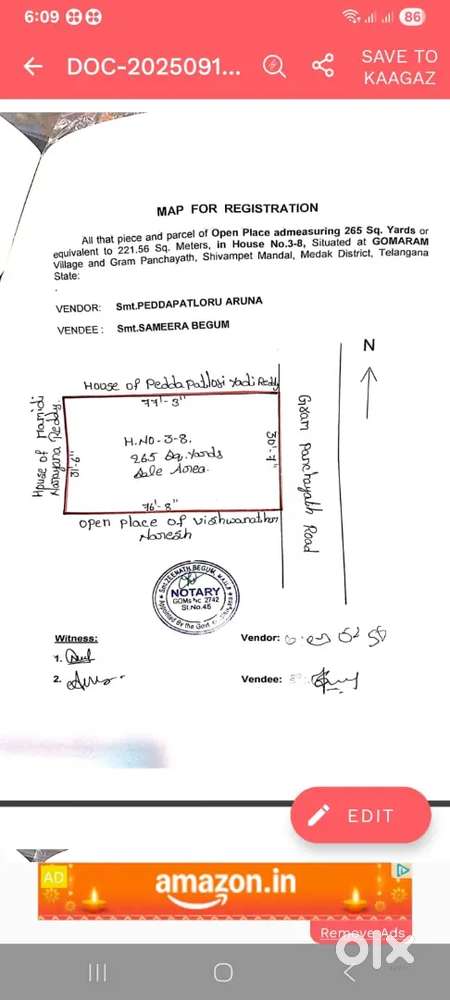 6:09
86
DOC-2025091...
SAVE TO
KAAGAZ
MAP FOR REGISTRATION
All that piece and parcel of Open Place admeasuring 265 Sq. Yards or
equivalent to 221.56 Sq. Meters, in House No.3-8, Situated at GOMARAM
Village and Gram Panchayath, Shivampet Mandal, Medak District, Telangana
State:
VENDOR: Smt.PEDDAPATLORU ARUNA
VENDEE : Smt.SAMEERA BEGUM
N
House of Pedda Patlosi Yadi Reddy
77'-3"
House of Mamidi
Narayana Reddy.
H.NO-3-8.
265 Sq.yards
Sale Area.
30'-7"
76'-8"
Gram Panchayath Road
open place of Vishwanathan
Naresh
Smt. ZEENATH BEGUM,
NOTARY
2742
Sl.No.45
Appointed By the Govt.
Witness:
1.
2.
Vendor:
Vendee:
EDIT
AD
amazon.in
Remove Ads
olx